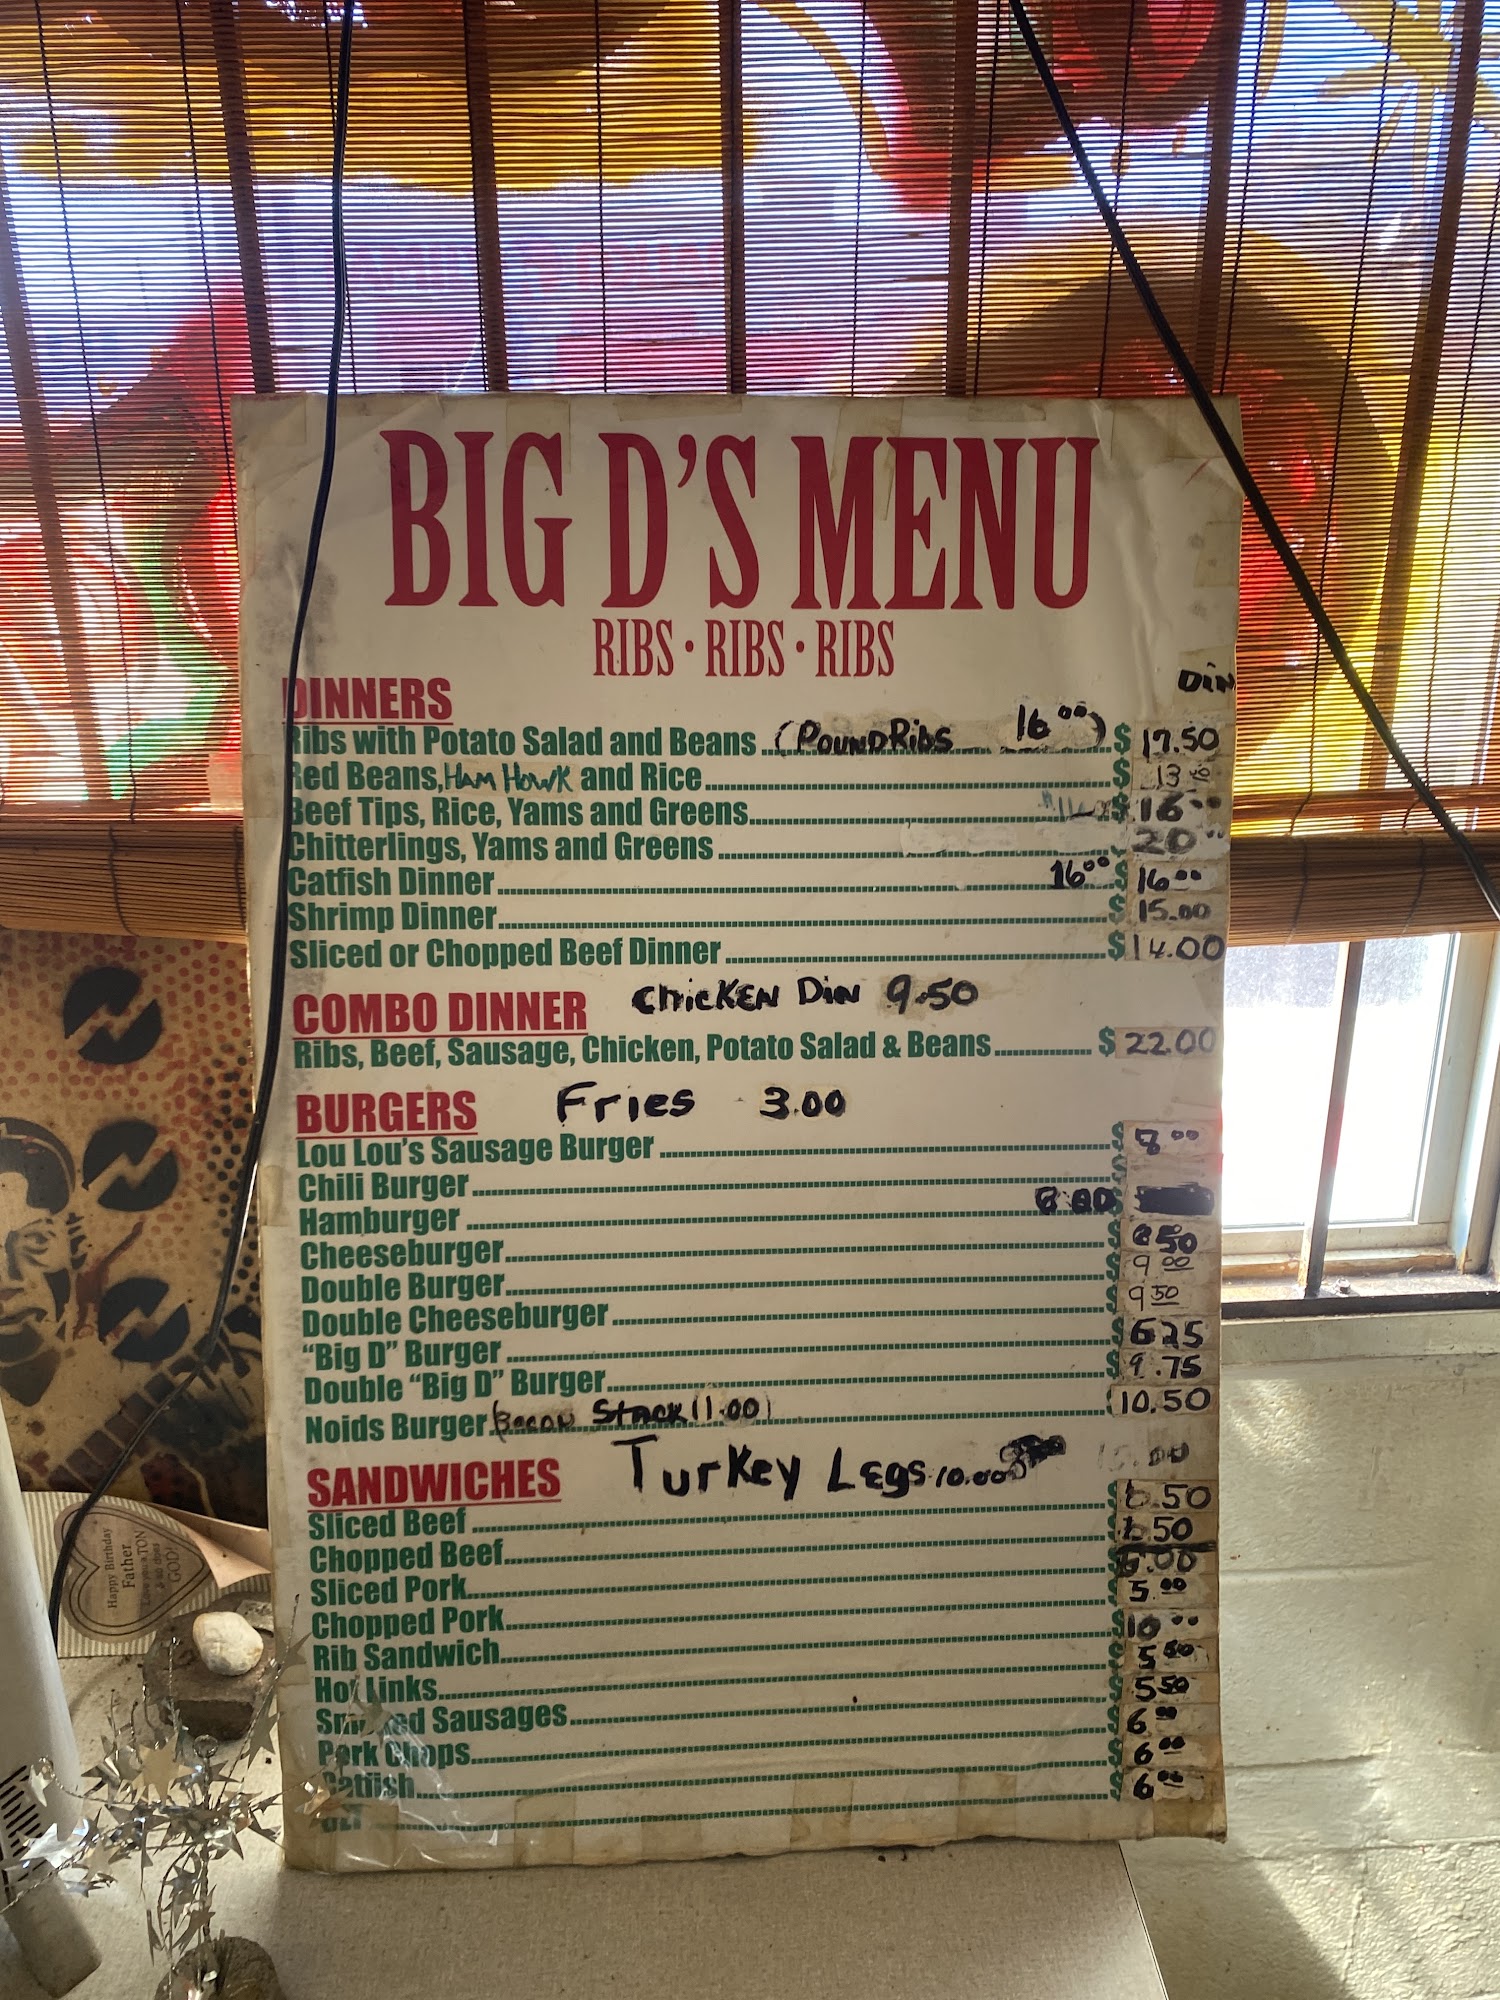 BIG D'S MENU
RIBS • RIBS • RIBS
DINNERS Din
Ribs with Potato Salad and Beans (Pound Ribs 16 00) $ 17.50
Red Beans, Ham Howk and Rice $ 13
Beef Tips, Rice, Yams and Greens $ 16 00
Chitterlings, Yams and Greens 20
Catfish Dinner 16 00 $ 16 00
Shrimp Dinner $ 15.00
Sliced or Chopped Beef Dinner $ 14.00
COMBO DINNER Chicken Din 9.50
Ribs, Beef, Sausage, Chicken, Potato Salad & Beans $ 22.00
BURGERS Fries 3.00
Lou Lou's Sausage Burger $ 8 00
Chili Burger
Hamburger
Cheeseburger $ 8 50
Double Burger $ 9 00
Double Cheeseburger $ 9 50
"Big D" Burger $ 6 25
Double "Big D" Burger $ 9.75
Noids Burger (Bacon Stack (1.00) 10.50
SANDWICHES Turkey Legs 10.00
Sliced Beef $ 6.50
Chopped Beef $ 6.50
Sliced Pork $ 6.00
Chopped Pork $ 5 00
Rib Sandwich $ 10 00
Hot Links $ 5 50
Smoked Sausages $ 5 50
Pork Chops $ 6 00
Catfish $ 6 00
$ 6 00
Happy Birthday
Father
Love you a TON
& so does
GOD!